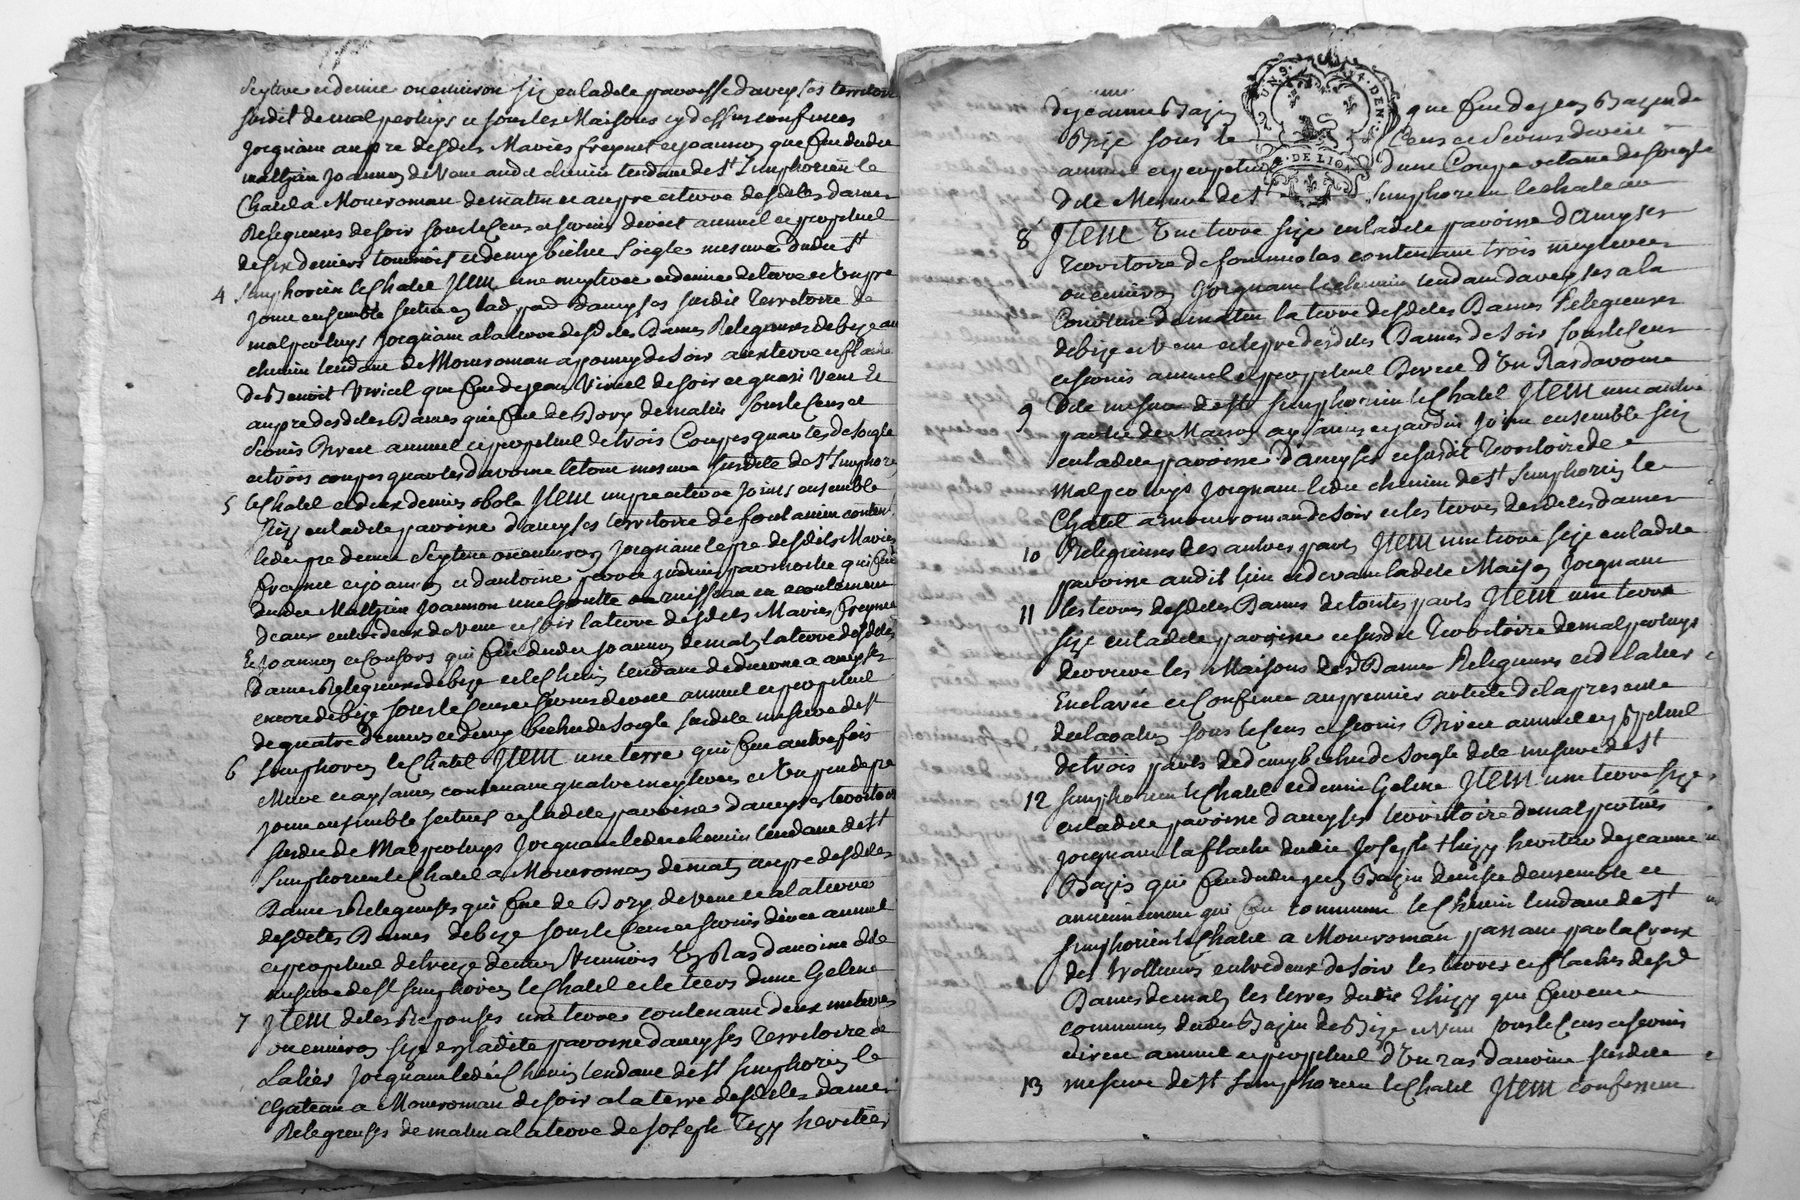 Seytive et demie ou environ size en ladite parroisse d'aveyses territoire
susdit de malpertuys et sous les Maisons cy dessus confinees
Joignant au pre desdits Maries freynet et joannon que fut dudit
mathieu Joannon de Vent audit chemin tendant de St Simphorien le
Chatel a Montroman de matin et au pre et terre desdites dames
Religieuses de soir sous le Cens et servis direct annuel et perpetuel
de six deniers tournois et demy bichet soigle mesure dudit St
4 Simphorien le Chatel Jtem une meyteree et demie de terre et Un pre
joint ensemble scitue en lad par d'aveyses susdit Territoire de
malpertuys Joignant a la terre desdites Dames Religieuses de bize au
chemin tendant de Montroman a pomey de soir aux terre et flache
de Benoit Viricel que fut de Jean Viricel de soir et quasi Vent et
au pre desdites Dames que fut de Bory de matin sous le Cens et
Servis Direct annuel et perpetuel de trois Coupes quartes de soigle
et trois coupes quartes d'avoine le tout mesure susdite de St Simphorien
5 le Chatel et deux deniers obole Jtem un pre et terre Joints ensemble
size en ladite parroisse d'aveyses territoire de fontanieu conten
ledit pre demie Seytive ou environ Joignant le pre desdits Maries
freynet et joannon et d'antoine
dudit Mathieu Joannon une Goutte ou ruisseau et ecoulement
d'eaux entredeux de Vent et soir la terre desdits Maries freynet
Et Joannon et Consors qui fut dudit Joannon de matin la terre desdites
dames Religieuses de bize et le Chemin tendant de duerne a aveyses
encore de bize sous le Cens et servis direct annuel et perpetuel
de quatre deniers et demy bichet de soigle susdite mesure de St
6 Simphorien le Chatel Jtem une terre qui fut autrefois
Mure et aysances contenant quatre meyterees et Un peu de pre
joint ensemble scitues en ladite parroisse d'aveyses territoire
susdit de Malpertuys Joignant ledit chemin tendant de St
Simphorien le Chatel a Montroman de matin au pre desdites
Dames Religieuses qui fut de Bory de Vent et a la terre
desdites Dames de bize sous le Cens et servis direct annuel
et perpetuel de treize deniers Viennois Un Ras d'avoine dite
mesure de St Simphorien le Chatel et le tiers d'une Geline
7 Jtem une terre contenant deux meterees
ou environ size en ladite parroisse d'aveyses Territoire de
Lalier Joignant ledit Chemin tendant de St Simphorien le
Chateau a Montroman de soir a la terre desdites dames
Religieuses de matin a la terre de Joseph Tizy heritier
de jeanne Bazin que fut de jean Bazin de
Bize sous le Cens et servis direct
annuel et perpetuel d'une Coupe octane de soigle
dite Mesure de St Simphorien le chateau
UN S. 4. DEN.
G. DE LION
8 Jtem Une terre size en ladite paroisse d'Aveyses
Territoire de contenant trois meyterees
ou environ Joignant le chemin tendant d'aveyses a la
de matin la terre desdites Dames Religieuses
de bize et Vent et le pre desdites Dames de Soir sous le Cens
et servis annuel et perpetuel Direct d'Un Ras d'avoine
9 dite mesure de St Simphorien le Chatel Jtem une autre
partie de Maison aysances et jardin Joint ensemble size
en ladite paroisse d'aveyses et susdit Territoire de
Malpertuys Joignant ledit chemin de St Simphorien le
Chatel a montroman de soir et les terres desdites dames
10 Religieuses des autres parts Jtem une terre size en ladite
paroisse audit lieu et devant ladite Maison Joignant
11 les terres desdites Dames de toutes parts Jtem une terre
size en ladite paroisse et susdit Territoire de malpertuys
derriere les Maisons desd Dames Religieuses et de l'atier
Enclavée et Confinee au premier article de la presente
declaration sous le Cens et servis Direct annuel et perpetuel
de trois parts de demy bichet de soigle dite mesure de St
12 Simphorien le Chatel et demie Geline Jtem une terre size
en ladite paroisse d'aveyses territoire de malpertuis
Joignant la flache dudit Joseph thizy heritier de jeanne
Bazin qui fut dudit jean Bazin
anciennement qui fut commune le Chemin tendant de St
Simphorien le Chatel a Montroman passant par la Croix
des entredeux de soir les terres et flaches desd
Dames de matin les terres dudit Thizy que furent
communes dudit Bazin de Bize et Vent sous le Cens et servis
direct annuel et perpetuel d'Un ras d'avoine susdite
13 mesure de St Simphorien le Chatel Jtem confessent